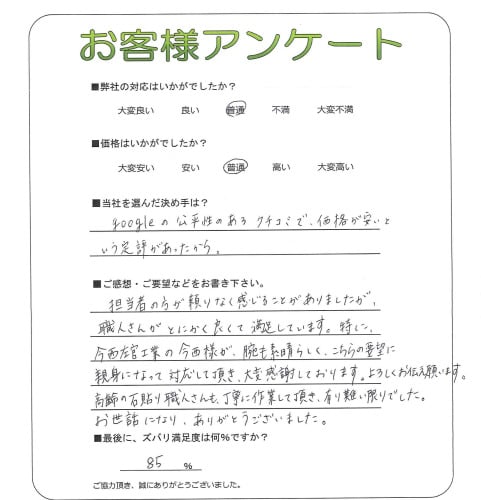 お客様アンケート
■弊社の対応はいかがでしたか?
大変良い 良い 普通 不満 大変不満
■価格はいかがでしたか?
大変安い 安い 普通 高い 大変高い
■当社を選んだ決め手は?
googleの公平性のあるクチコミで、価格が安いと
いう定評があったから。
■ご感想・ご要望などをお書き下さい。
担当者の方が頼りなく感じることがありましたが、
職人さんがとにかく良くて満足しています。特に、
今西左官工業の今西様が、腕も素晴らしく、こちらの要望に
親身になって対応して頂き、大変感謝しております。よろしくお伝え願います。
高齢の石貼り職人さんも、丁寧に作業して頂き、有り難い限りでした。
お世話になり、ありがとうございました。
■最後に、ズバリ満足度は何%ですか?
85 %
ご協力頂き、誠にありがとうございました。